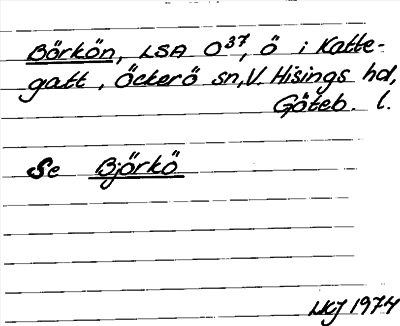 Börkön, LSA O37, ö i Katte-
gatt, Öckerö sn, V. Hisings hd,
Göteb. l.
Se Björkö
1974